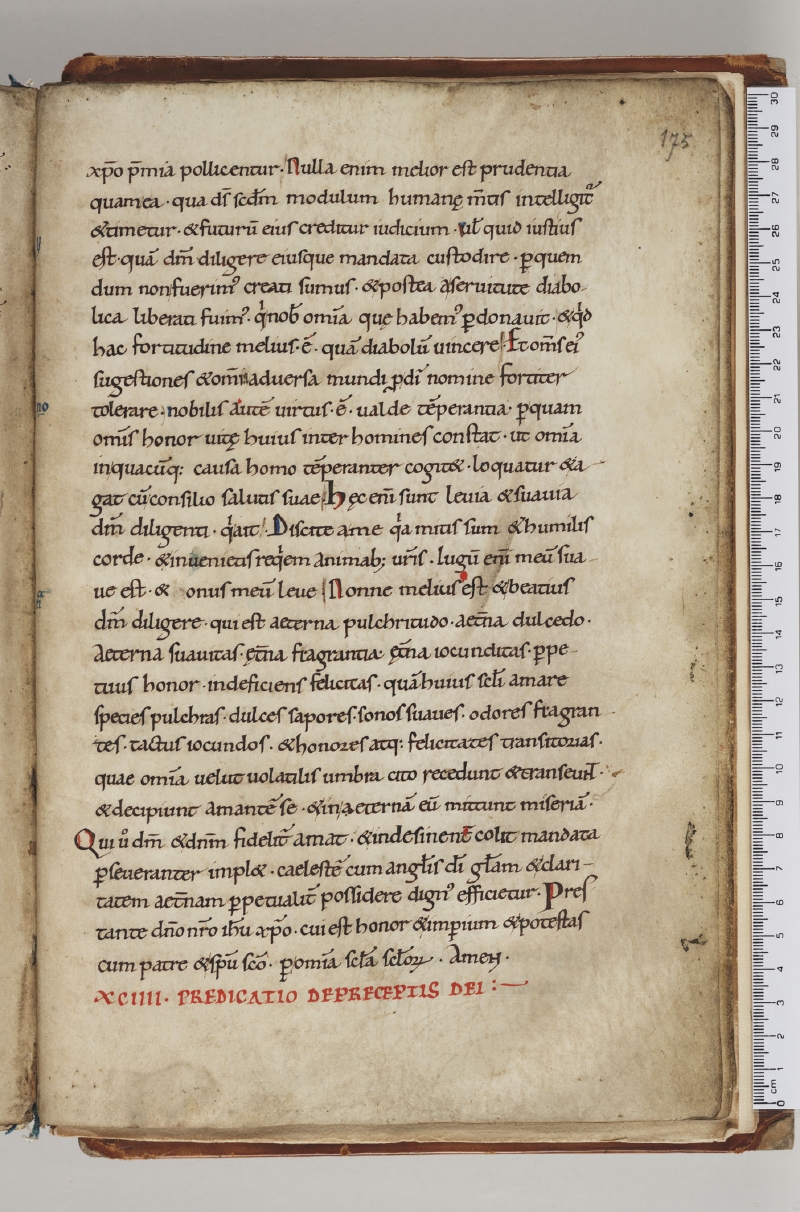 175
xp̄o p̄mia pollicentur. Nulla enim melior est prudentia
quamea. qua ds̄ scdm̄ modulum humanę m̄tis intelligit᷒
&timetur. &futurū eius creditur iudicium. ul̄ quid iustius
est. quā dm̄ diligere eiusque mandata custodire. ꝑquem
dum nonfuerim᷒ creati sumus. &postea aseruitute diabo-
lica liberati fuim᷒. q̇nob̄ om̄ia que habem᷒ ꝑdonauit. &q̇d
hac fortitudine melius. ē. quā diabolū uincere. Et om̄s ei᷒
sugestiones &om̄iaadversa mundi ꝓdi̅ nomine fortiter
tolerare. nobilis autē uirtus. ē. ualde tēperantia. ꝑquam
om̄is honor uitę huius inter homines constat. ut om̄ia
inquacūq: causa homo tēperanter cogit&. loquatur &a-
gat cūconsilio salutis suae. hęc enī sunt leuia &suauia
dm̄ diligenti. q̇ait. Discite ame q̇a mitis sum &humilis
corde. &inuenietis req̇em animab; ur̄is. lugū enī meū sua-
ue est. & onus meū leue. Nonne melius est &beatius
dm̄ diligere. qui est aeterna pulchritudo. aet̄na dulcedo.
Aeterna suauitas. ęt̄na fragrantia. ęt̄na iocunditas. ꝑpe-
tuus honor. indeficiens felicitas. quā huius scl̄i amare
species pulchras. dulces sapores. sonos suaues. odores fragran-
tes. tactus iocundos. &honores atq: felicitates transitorias.
quae om̄ia uelut uolatilis umbra cito recedunt &transeunt.
&decipiunt amantē se. &inaeternā eū mittunt miseriā.
Qui ů dm̄ &dnm̄ fidelit̄ amat. &indesinent̄ colit mandata
ꝑseueranter impl&. caelestē cum angl̄is di̅ gl̄am &clari-
tatem aet̄nam ꝑpetualit̄ possidere dign᷒ efficietur. Pres
tante dn̄o nr̄o ih̄u xp̄o. cui est honor &imꝑium &potestas
cum patre &sp̄u sc̄o. ꝑomīa scl̄a scl̄oꝝ. Amen.
XCIIII. PREDICATIO DEPRECEPTIS DEI :—
no
cm 0 1 2 3 4 5 6 7 8 9 10 11 12 13 14 15 16 17 18 19 20 21 22 23 24 25 26 27 28 29 30